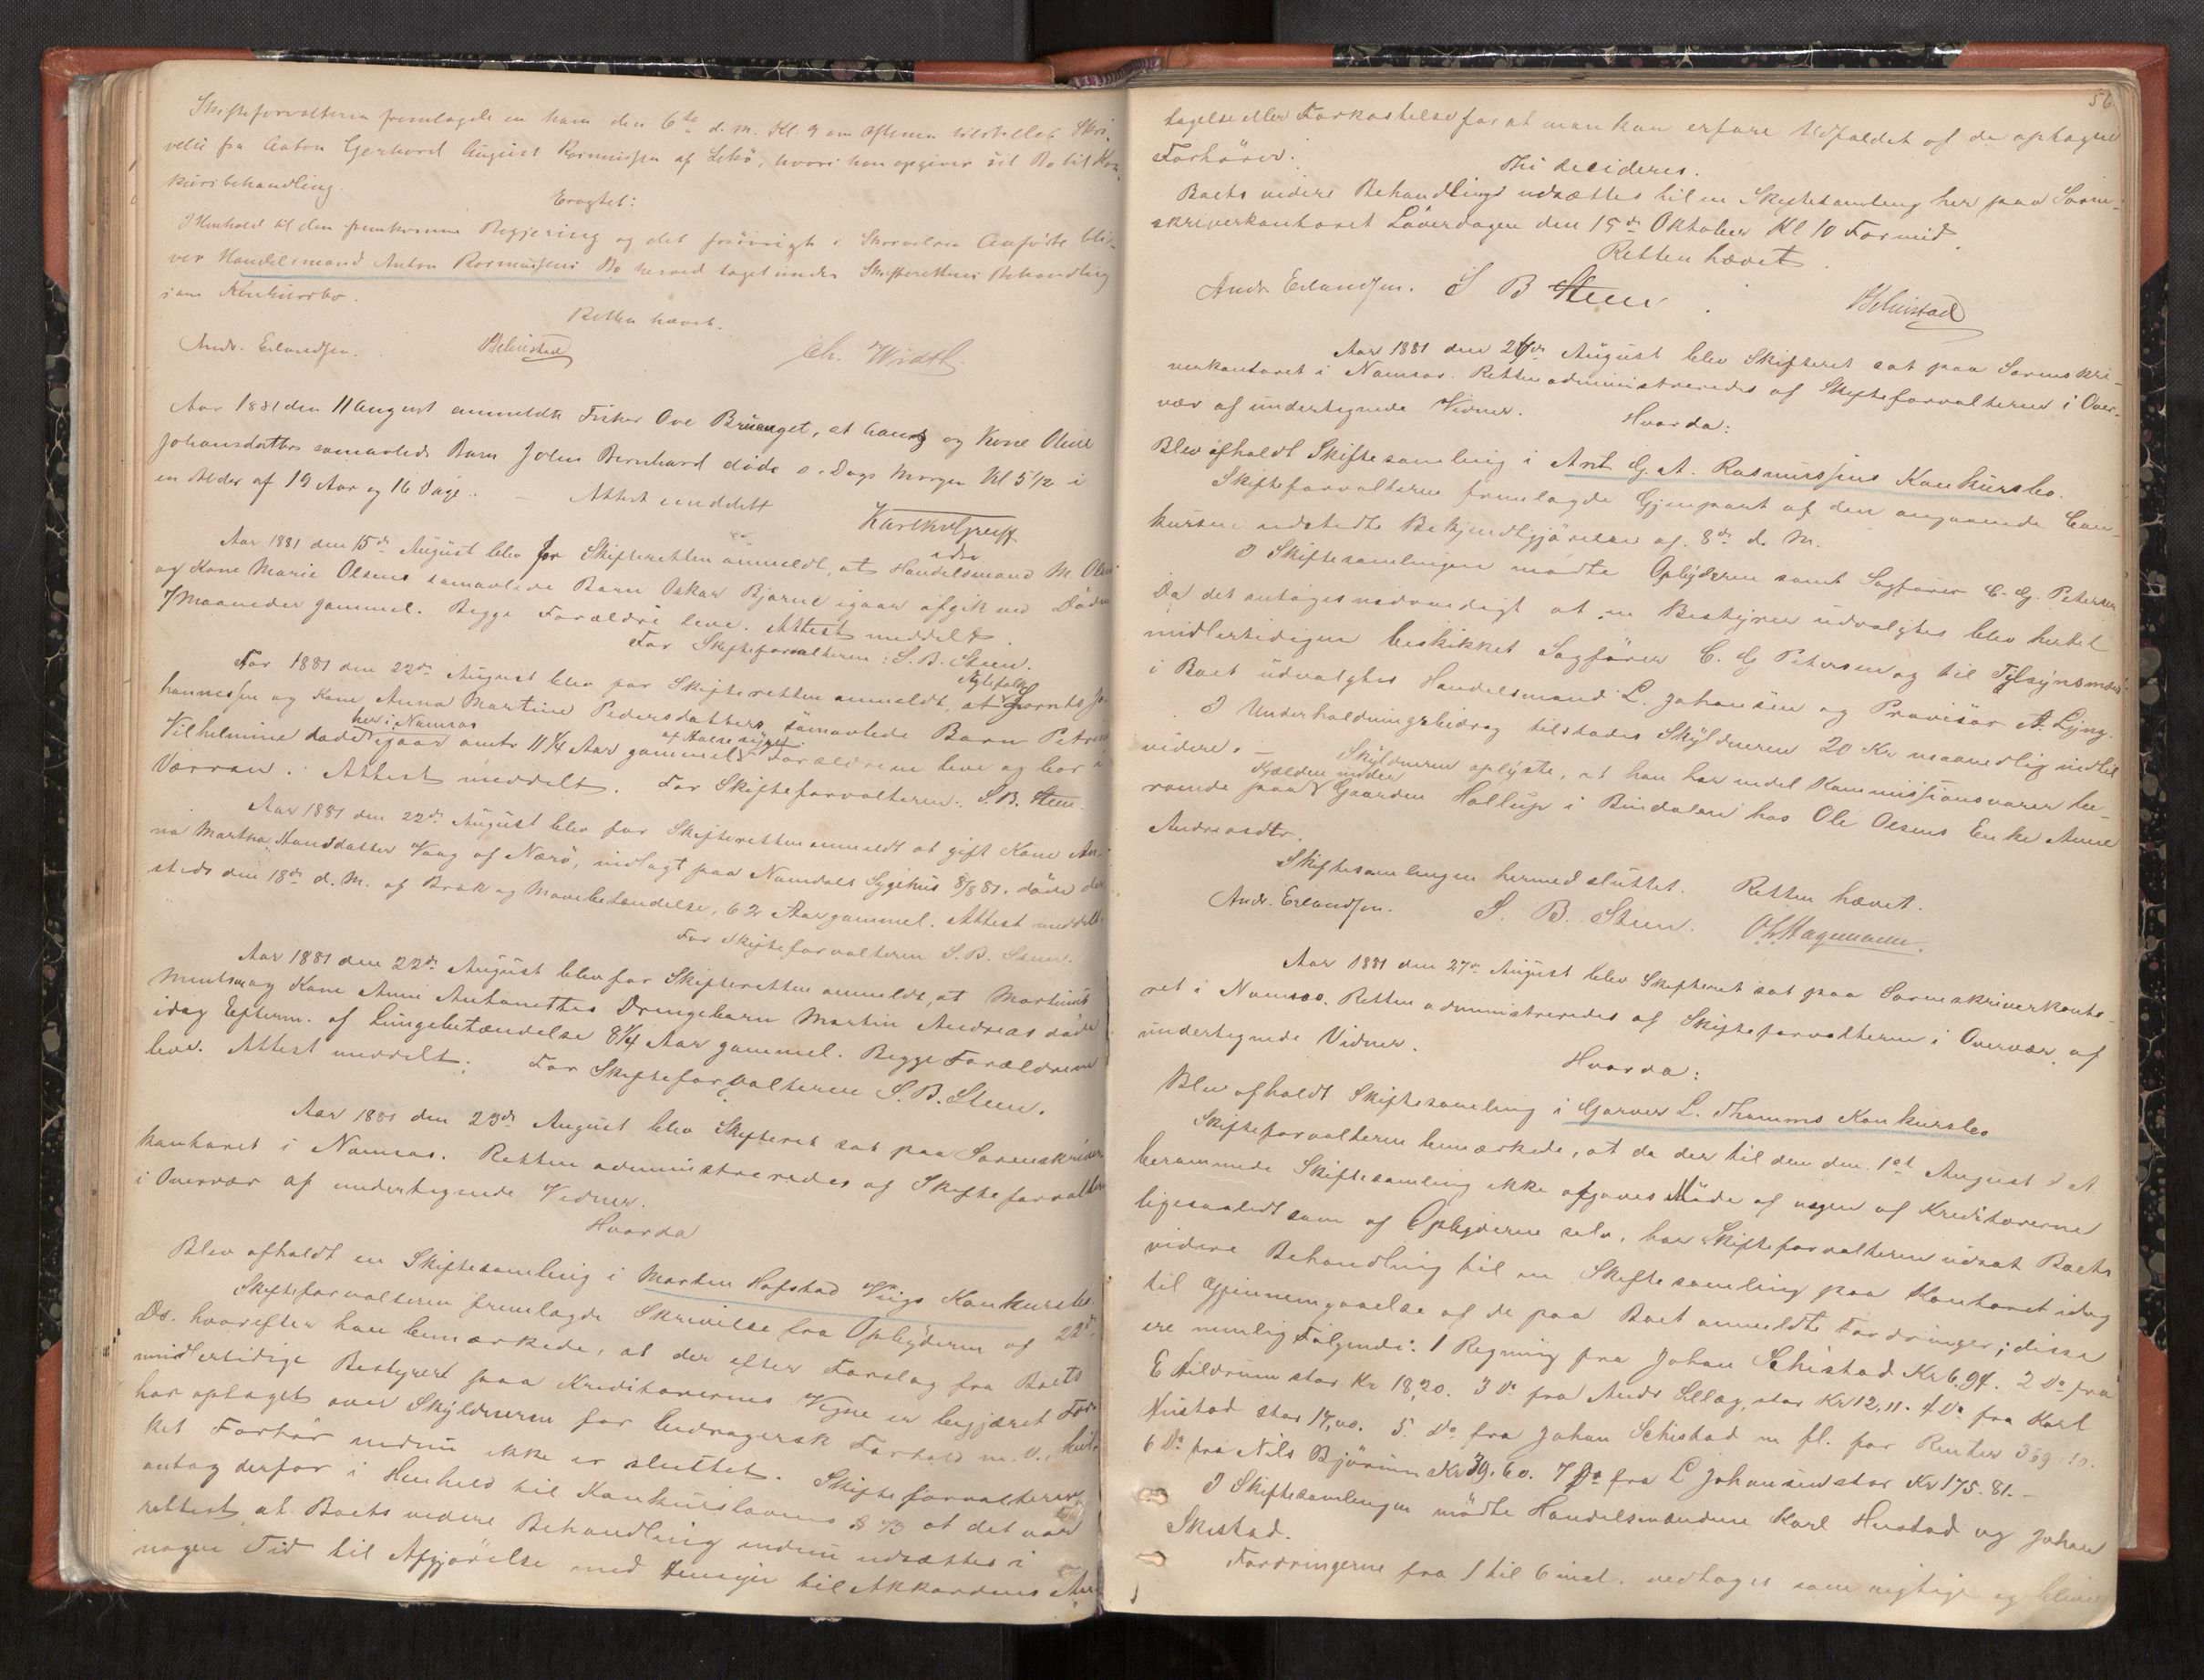 Skifteforvalteren fremlagde en ham den 6te d. m. Kl. 9 om Aftenen tilstillet Skri-
velse fra Anton Gerhard August Rasmussen af Lekø, hvori han opgiver sit Bo til Kon-
kursbehandling.
Eragtet:
I Henhold til den fremkomne Begjering og det forøvrigt i Skrivelsen Anførte bli-
ver Handelsmand Anton Rasmussens Bo herved taget under Skifterettens Behandling
som Konkursbo.
Retten hævet.
Andr. Erlandsen. Ch. Width
Aar 1881 den 11 August anmeldte Fisker Ove Bruaget, at hans og Kone Oline
Johansdatters samavlede Barn John Bernhard døde s. Dags Morgen Kl 5 1/2 i
en Alder af 19 Aar og 16 Dage. — Attest meddelt
Aar 1881 den 15de August blev for Skifteretten anmeldt, at Handelsmand M. Olsen
og Kone Marie Olsens samavlede Barn Oskar Bjarne igaar afgik ved Døden
7 Maaneder gammel. Begge Forældre leve. Attest meddelt.
For Skifteforvalteren: S. B. Steen.
Aar 1881 den 22de August blev for Skifteretten anmeldt, at Ægtefolk Jo-
hannessen og Kone Anna Martine Pedersdatters samavlede Barn Petrine
Vilhelmine døde her i Namsos igaar omtr 11 1/4 Aar gammel af Halssyge. Forældrene leve og bor i
Værran. Attest meddelt. For Skifteforvalteren: S. B. Steen.
Aar 1881 den 22de August blev for Skifteretten anmeldt at gift Kone An-
na Martha Hansdatter Vaag af Nærø, indlagt paa Namdals Sygehus 8/8 81. døde der-
steds den 18de d. M. af Brok og Mavebetændelse, 62 Aar gammel. Attest meddelt.
For Skifteforvalteren S. B. Steen.
Aar 1881 den 22de August blev for Skifteretten anmeldt, at Martinus
Mentsen og Kone Anne Antonettes Drengebarn Martin Andreas døde
idag Efterm. af Lungebetændelse 8 1/4 Aar gammel. Begge Forældrene
leve. Attest meddelt. For Skifteforvalteren S. B. Steen.
Aar 1881 den 23de August blev Skifteret sat paa Sorenskriver-
kontoret i Namsos. Retten administreredes af Skifteforvalteren
i Overvær af undertegnede Vidner.
Hvorda
Blev afholdt en Skiftesamling i Morten Hofstad Viigs Konkursbo.
Skifteforvalteren fremlagde Skrivelse fra Opbyderen af 22de
Ds. hvorefter han bemærkede, at der efter Forslag fra Boets
midlertidige Bestyrer paa Kreditorernes Vegne er begjæret For-
hør optaget over Skyldneren for bedragersk Forhold m. V., hvil-
ket Forhør endnu ikke er sluttet. Skifteforvalteren
antog derfor i Henhold til Konkurslovens § 73 at det var
rettest at Boets videre Behandling endnu udsættes i
nogen Tid til Afgjørelse med Hensyn til Akkordens An-
56
tagelse eller Forkastelse for at man kan erfare Udfaldet af de optagne
Forhører.
Thi decideres.
Boets videre Behandling udsættes til en Skiftesamling her paa Soren-
skriverkontoret Løverdagen den 15de Oktober Kl 10 Formid.
Retten hævet.
Andr. Erlandsen. S B Steen
Aar 1881 den 24de August blev Skifteret sat paa Sorenskri-
verkontoret i Namsos. Retten administreredes af Skifteforvalteren i Over-
vær af undertegnede Vidner. Hvorda:
Blev afholdt Skiftesamling i Ant G. A. Rasmussens Konkursbo.
Skifteforvalteren fremlagde Gjenpart af den angaaende Con-
kursen udstedte Bekjendtgjørelse af 8de d. M.
I Skiftesamlingen mødte Opbyderen samt Sagfører C. G. Petersen.
Da det antages nødvendigt at en Bestyrer udvalgtes blev hertil
midlertidigen beskikket Sagfører C. G Petersen og til Tilsynsmænd
i Boet udvalgtes Handelsmand L. Johansen og Provisor A. Lyng.
I Underholdningsbidrag tilstodes Skyldneren 20 Kr maanedlig indtil
videre. — Skyldneren oplyste, at han har endel Kommissionsvarer be-
roende paa Gaarden Hollup i Bindalen hos Ole Olsens Enke Anne
Andreasdtr.
Skiftesamlingen hermed sluttet. Retten hævet.
Andr. Erlandsen. S. B. Steen.
Aar 1881 den 27de August blev Skifteret sat paa Sorenskriverkonto-
ret i Namsos. Retten administreredes af Skifteforvalteren i Overvær af
undertegnede Vidner.
Hvorda:
Blev afholdt Skiftesamling i Garver L. Thamms Konkursbo
Skifteforvalteren bemærkede, at da der til den den 1st August d A
berammede Skiftesamling ikke afgaves Møde af nogen af Kreditorerne
ligesaalidt som af Opbyderen selv, har Skifteforvalteren udsat Boets
videre Behandling til en Skiftesamling paa Kontoret idag
til Gjennemgaaelse af de paa Boet anmeldte Fordringer; disse
ere nemlig Følgende: 1 Regning fra Johan Schistad Kr 6,94. 2 Do fra
E Hildrum stor Kr 18,20. 3 Do fra Andr Sellæg, stor Kr 12,11. 4 Do fra Karl
Hustad stor 17,00. 5. Do fra Johan Schistad m fl. for Renter 369.10.
6 Do fra Nils Bjørum Kr 39.60. 7 Do fra L Johansen stor Kr 175.81. —
I Skiftesamlingen mødte Handelsmændene Karl Hustad og Johan
Skistad.
Fordringerne fra 1 til 6 incl. vedtages som rigtige og bliver